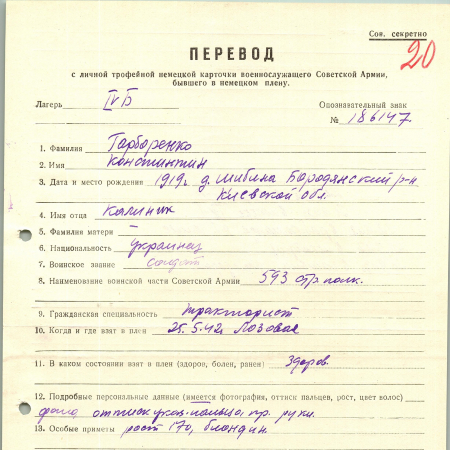 Сов. секретно
20
ПЕРЕВОД
с личной трофейной немецкой карточки военнослужащего Советской Армии,
бывшего в немецком плену.
Лагерь IVБ
Опознавательный знак
№ 186147.
1. Фамилия Гарборенко
2. Имя Константин
3. Дата и место рождения 1919г. д. Мибина Бородянский р-н
Киевской обл.
4. Имя отца Калиник
5. Фамилия матери –
6. Национальность Украинец
7. Воинское звание солдат
8. Наименование воинской части Советской Армии 593 стр. полк.
9. Гражданская специальность тракторист
10. Когда и где взят в плен 25.5.42 Лозовая
11. В каком состоянии взят в плен (здоров, болен, ранен) Здоров.
12. Подробные персональные данные (имеется фотография, оттиск пальцев, рост, цвет волос)
фото оттиск указ. пальца, пр. руки.
13. Особые приметы рост 170, блондин.